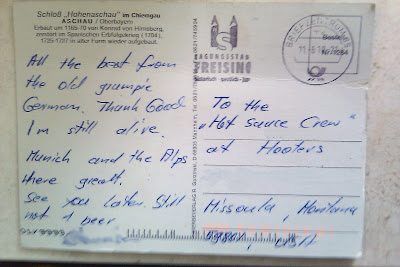 Schloß „Hohenaschau" im Chiemgau
ASCHAU / Oberbayern
Erbaut um 1165-70 von Konrad von Hirnsberg,
zerstört im Spanischen Erbfolgekrieg (1704),
in alter Form wieder aufgebaut.
All the best from
the old grumpie
German. Thank Good
I'm still alive.
Munich and the Alps
where great.
See you later. Still
not 1 beer
TAGUNGSSTADT
FREISING
BRIEFZENTRUM
To the
"Hot Sauce Crew"
at Hooters
Missoula, Montana
USA